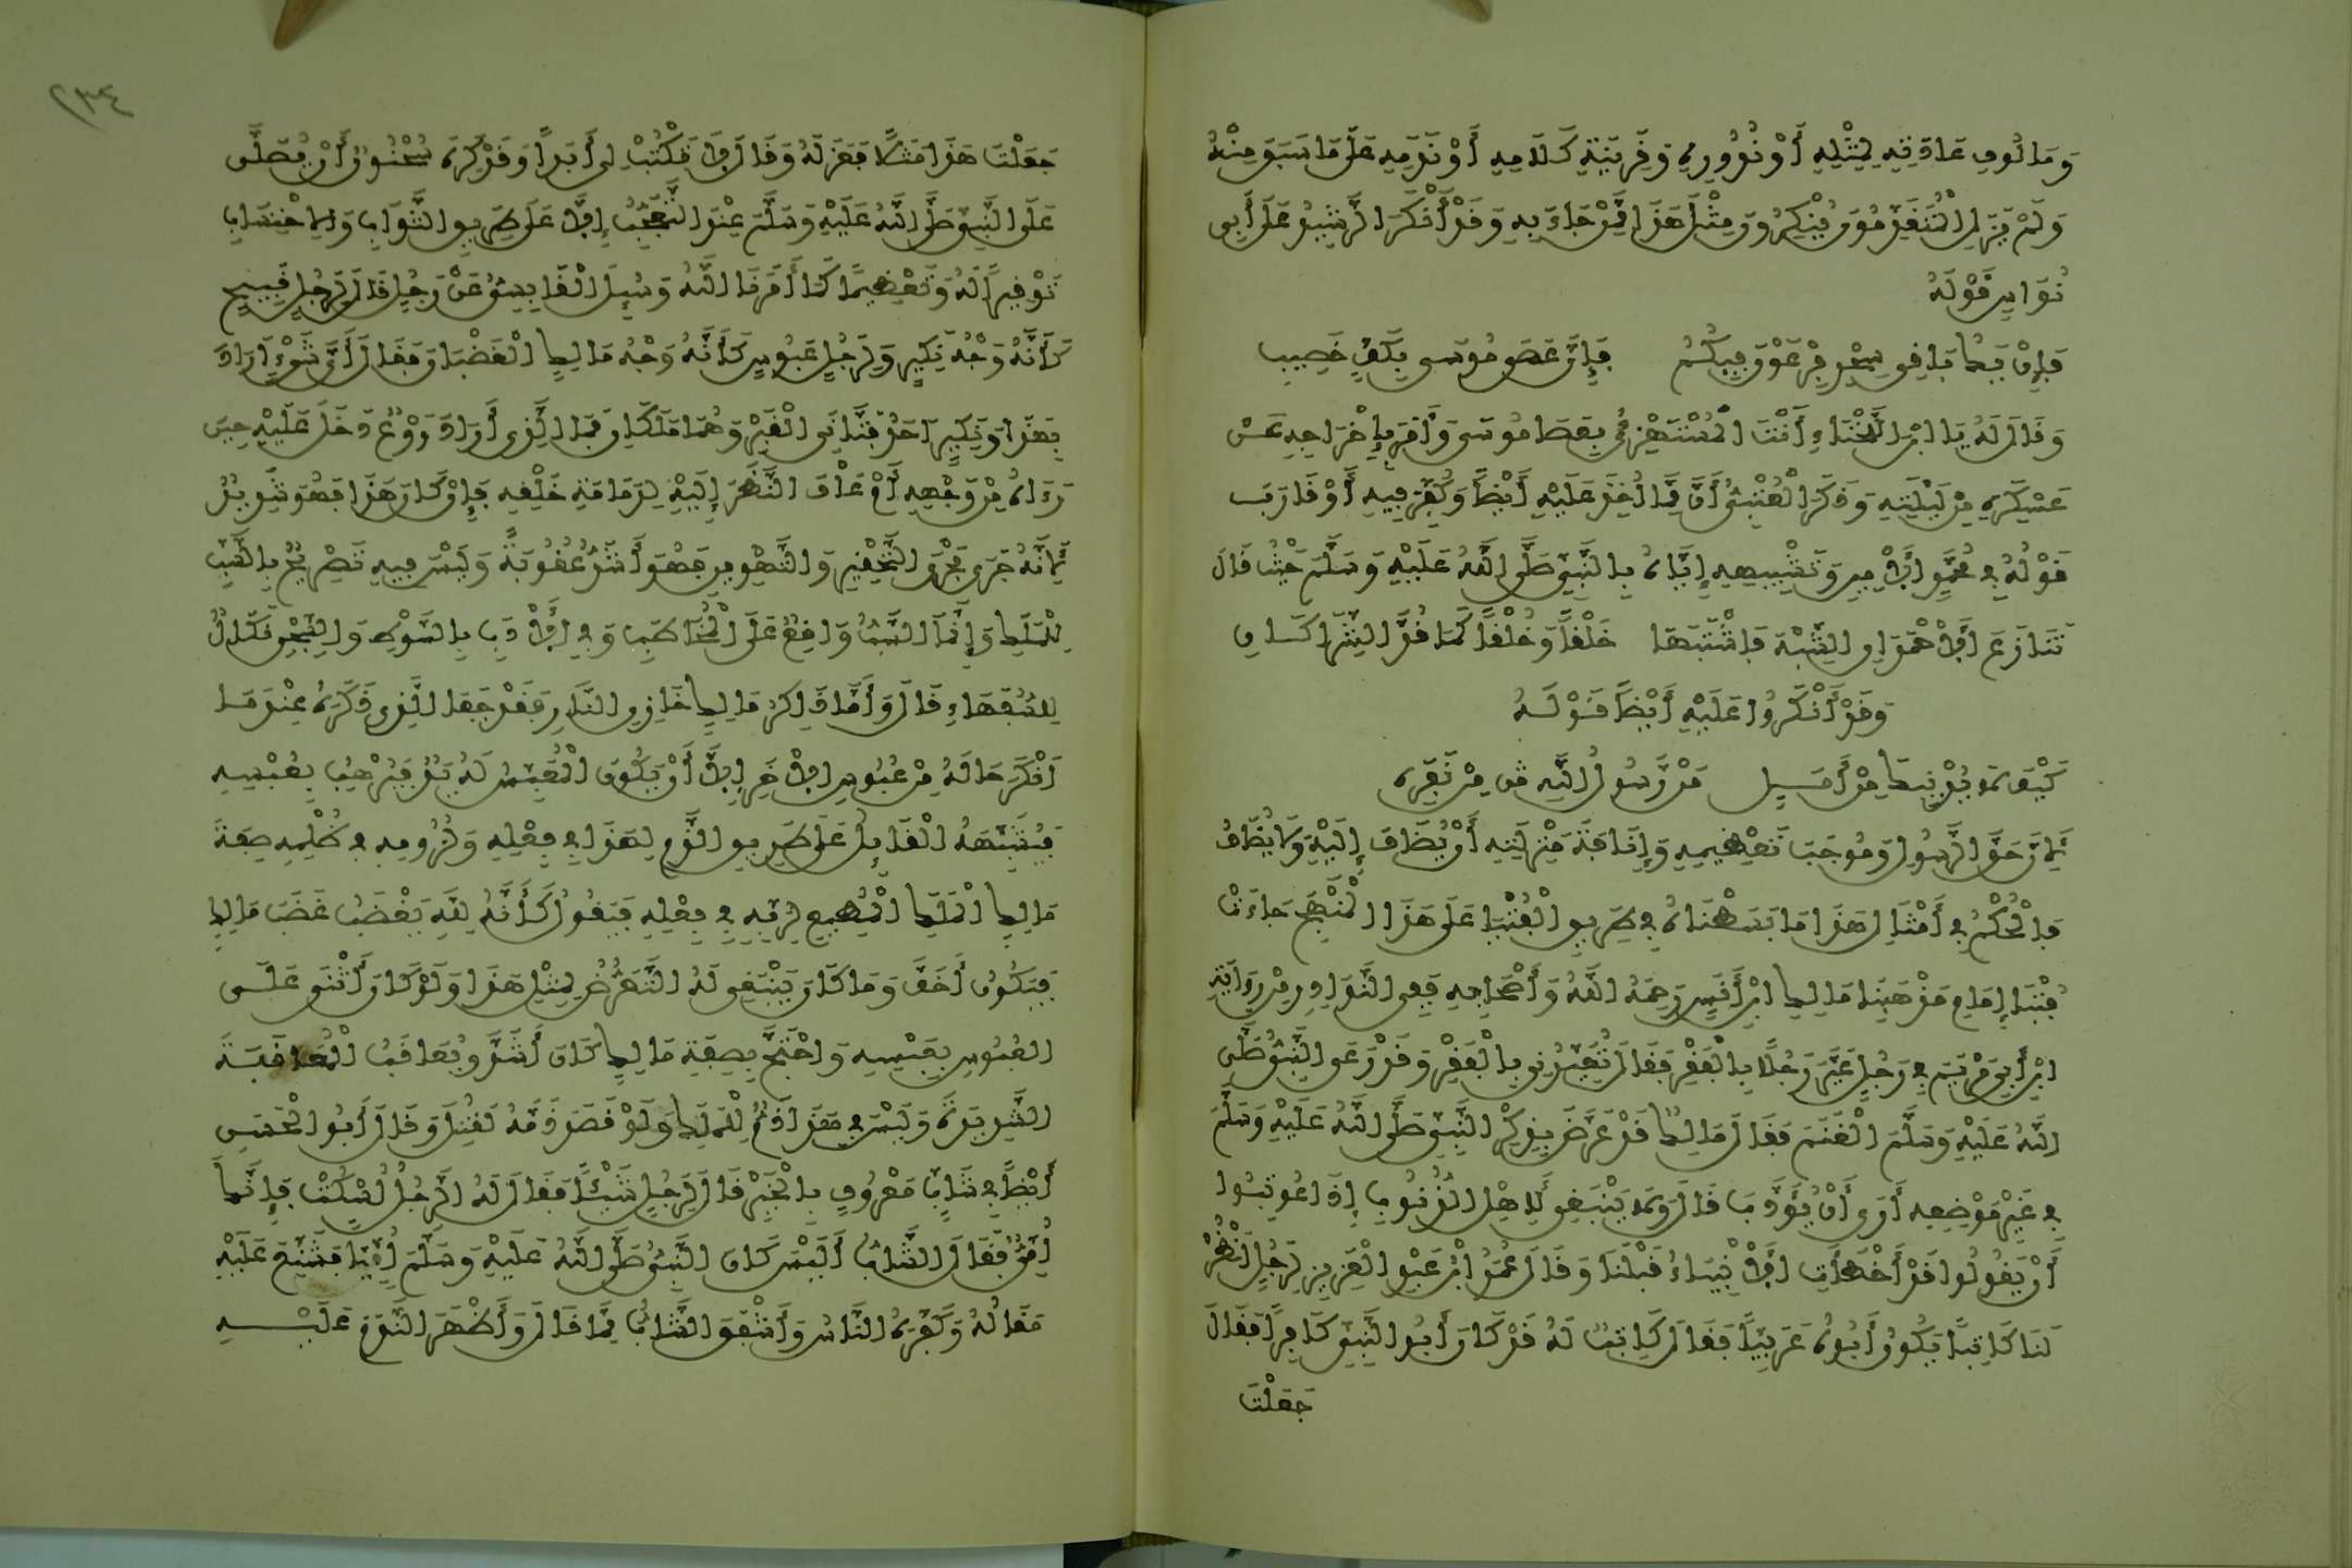 وَمَالُوفِ عَادَتِهِ لِمِثْلِهِ أَوْ نُدُورِهِ وَقَرِينَةِ كَلَامِهِ أَوْ نَدَمِهِ عَلَى مَا سَبَقَ مِنْهُ
وَلَمْ يَزَلِ الْمُتَقَدِّمُونَ يُنْكِرُونَ مِثْلَ هَذَا مِمَّنْ جَاءَ بِهِ وَقَدْ أَنْكَرَ الرَّشِيدُ عَلَى أَبِي
نُوَاسٍ قَوْلَهُ
فَإِنْ يَكُ بَاقِي سِحْرِ فِرْعَوْنَ فِيكُمْ فَإِنَّ عَصَى مُوسَى بِكَفِّ خَصِيبِ
وَقَالَ لَهُ يَا ابْنَ اللَّخْنَاءِ أَنْتَ الْمُسْتَهْزِئُ بِعَصَا مُوسَى وَأَمَرَ بِإِخْرَاجِهِ عَنْ
عَسْكَرِهِ مِنْ لَيْلَتِهِ وَذَكَرَ الْقُتَبِيُّ أَنَّ مِمَّا أُخِذَ عَلَيْهِ أَيْضًا وَكُفِّرَ فِيهِ أَوْ قَارَبَ
قَوْلُهُ فِي مُحَمَّدٍ الْأَمِينِ وَتَشْبِيهِهِ إِيَّاهُ بِالنَّبِيِّ صَلَّى اللَّهُ عَلَيْهِ وَسَلَّمَ حَيْثُ قَالَ
تَنَازَعَ الْأَحْمَدَانِ الشِّبْهَ فَاشْتَبَهَا خَلْقًا وَخُلْقًا كَمَا قُدَّ الشِّرَاكَانِ
وَقَدْ أَنْكَرُوا عَلَيْهِ أَيْضًا قَوْلَهُ
كَيْفَ لَا يُدْنِيكَ مِنْ أَمَلٍ مَنْ رَسُولُ اللَّهِ مِنْ نَفَرِهِ
لِأَنَّ حَقَّ الرَّسُولِ وَمُوجَبَ تَعْظِيمِهِ وَإِنَافَةَ مَنْزِلَتِهِ أَنْ يُضَافَ إِلَيْهِ وَلَا يُضَافُ
فَالْحُكْمُ فِي أَمْثَالِ هَذَا مَا بَسَطْنَاهُ فِي طَرِيقِ الْفُتْيَا عَلَى هَذَا الْمَنْهَجِ جَاءَتْ
فُتْيَا إِمَامِ مَذْهَبِنَا مَالِكِ ابْنِ أَنَسٍ رَحِمَهُ اللَّهُ وَأَصْحَابِهِ فَفِي النَّوَادِرِ مِنْ رِوَايَةِ
ابْنِ أَبِي مَرْيَمَ فِي رَجُلٍ عَيَّرَ رَجُلًا بِالْفَقْرِ فَقَالَ تُعَيِّرُنِي بِالْفَقْرِ وَقَدْ رَعَى النَّبِيُّ صَلَّى
اللَّهُ عَلَيْهِ وَسَلَّمَ الْغَنَمَ فَقَالَ مَالِكٌ قَدْ عَرَّضَ بِذِكْرِ النَّبِيِّ صَلَّى اللَّهُ عَلَيْهِ وَسَلَّمَ
فِي غَيْرِ مَوْضِعِهِ أَرَى أَنْ يُؤَدَّبَ قَالَ وَلَا يَنْبَغِي لِأَهْلِ الذُّنُوبِ إِذَا عُوتِبُوا
أَنْ يَقُولُوا قَدْ أَخْطَأَتِ الْأَنْبِيَاءُ قَبْلَنَا وَقَالَ عُمَرُ ابْنُ عَبْدِ الْعَزِيزِ لِرَجُلٍ انْظُرْ
لَنَا كَاتِبًا يَكُونُ أَبُوهُ عَرَبِيًّا فَقَالَ كَاتِبٌ لَهُ قَدْ كَانَ أَبُو النَّبِيِّ كَافِرًا فَقَالَ
جَعَلْتَ
٢٣٤
جَعَلْتَ هَذَا مَثَلًا فَعَزَلَهُ وَقَالَ لَا تَكْتُبْ لِي أَبَدًا وَقَدْ كَرِهَ سُحْنُونٌ أَنْ يُصَلَّى
عَلَى النَّبِيِّ صَلَّى اللَّهُ عَلَيْهِ وَسَلَّمَ عِنْدَ التَّعَجُّبِ إِلَّا عَلَى طَرِيقِ الثَّوَابِ وَالِاحْتِسَابِ
تَوْقِيرًا لَهُ وَتَعْظِيمًا كَمَا أَمَرَنَا اللَّهُ وَسُئِلَ الْقَابِسِيُّ عَنْ رَجُلٍ قَالَ لِرَجُلٍ قَبِيحٍ
كَأَنَّهُ وَجْهُ نَكِيرٍ وَلِرَجُلٍ عَبُوسٍ كَأَنَّهُ وَجْهُ مَالِكٍ الْغَضْبَانِ فَقَالَ أَيَّ شَيْءٍ أَرَادَ
بِهَذَا وَنَكِيرٌ أَحَدُ فَتَّانَيِ الْقَبْرِ وَهُمَا مَلَكَانِ فَمَا الَّذِي أَرَادَ أَرَوْعٌ دَخَلَ عَلَيْهِ حِينَ
رَءَاهُ مِنْ وَجْهِهِ أَمْ عَافَ النَّظَرَ إِلَيْهِ لِدَمَامَةِ خَلْقِهِ فَإِنْ كَانَ هَذَا فَهُوَ شَدِيدٌ
لِأَنَّهُ جَرَى مَجْرَى التَّحْقِيرِ وَالتَّهْوِينِ فَهُوَ أَشَدُّ عُقُوبَةً وَلَيْسَ فِيهِ تَصْرِيحٌ بِالسَّبِّ
لِلْمَلَكِ وَإِنَّمَا السَّبُّ وَاقِعٌ عَلَى الْمُخَاطَبِ وَفِي الْأَدَبِ بِالسَّوْطِ وَالسِّجْنِ نَكَالٌ
لِلسُّفَهَاءِ قَالَ وَأَمَّا ذَاكِرُ مَالِكٍ خَازِنِ النَّارِ فَقَدْ جَفَا الَّذِي ذَكَرَهُ عِنْدَ مَا
أَنْكَرَ حَالَهُ مِنْ عُبُوسِ الْآخَرِ إِلَّا أَنْ يَكُونَ الْمُعَبِّسُ لَهُ يَدٌ فَيَرْهَبُ بِعَبْسِهِ
فَيُشَبِّهَهُ الْقَائِلُ عَلَى طَرِيقِ الذَّمِّ لِهَذَا فِي فِعْلِهِ وَلُزُومِهِ فِي ظُلْمِهِ صِفَةَ
مَالِكٍ الْمَلَكِ الْمُطِيعِ لِرَبِّهِ فِي فِعْلِهِ فَيَقُولُ كَأَنَّهُ لِلَّهِ يَغْضَبُ غَضَبَ مَالِكٍ
فَيَكُونُ أَخَفَّ وَمَا كَانَ يَنْبَغِي لَهُ التَّعَرُّضُ لِمِثْلِ هَذَا وَلَوْ كَانَ أَثْنَى عَلَى
الْعَبُوسِ بِعَبْسِهِ وَاحْتَجَّ بِصِفَةِ مَالِكٍ كَانَ أَشَدَّ وَيُعَاقَبُ الْمُعَاقَبَةَ
الشَّدِيدَةَ وَلَيْسَ فِي هَذَا ذَمٌّ لِلْمَلَكِ وَلَوْ قَصَدَ ذَمَّهُ لَقُتِلَ وَقَالَ أَبُو الْحَسَنِ
أَيْضًا فِي شَابٍّ مَعْرُوفٍ بِالْخَيْرِ قَالَ لِرَجُلٍ شَيْئًا فَقَالَ لَهُ الرَّجُلُ اُسْكُتْ فَإِنَّكَ
أُمِّيٌّ فَقَالَ الشَّابُّ أَلَيْسَ كَانَ النَّبِيُّ صَلَّى اللَّهُ عَلَيْهِ وَسَلَّمَ أُمِّيًّا فَشَنَّعَ عَلَيْهِ
مَقَالُهُ وَكَفَّرَهُ النَّاسُ وَأَشْفَقَ الشَّابُّ مِمَّا قَالَ وَأَظْهَرَ النَّدَمَ عَلَيْهِ